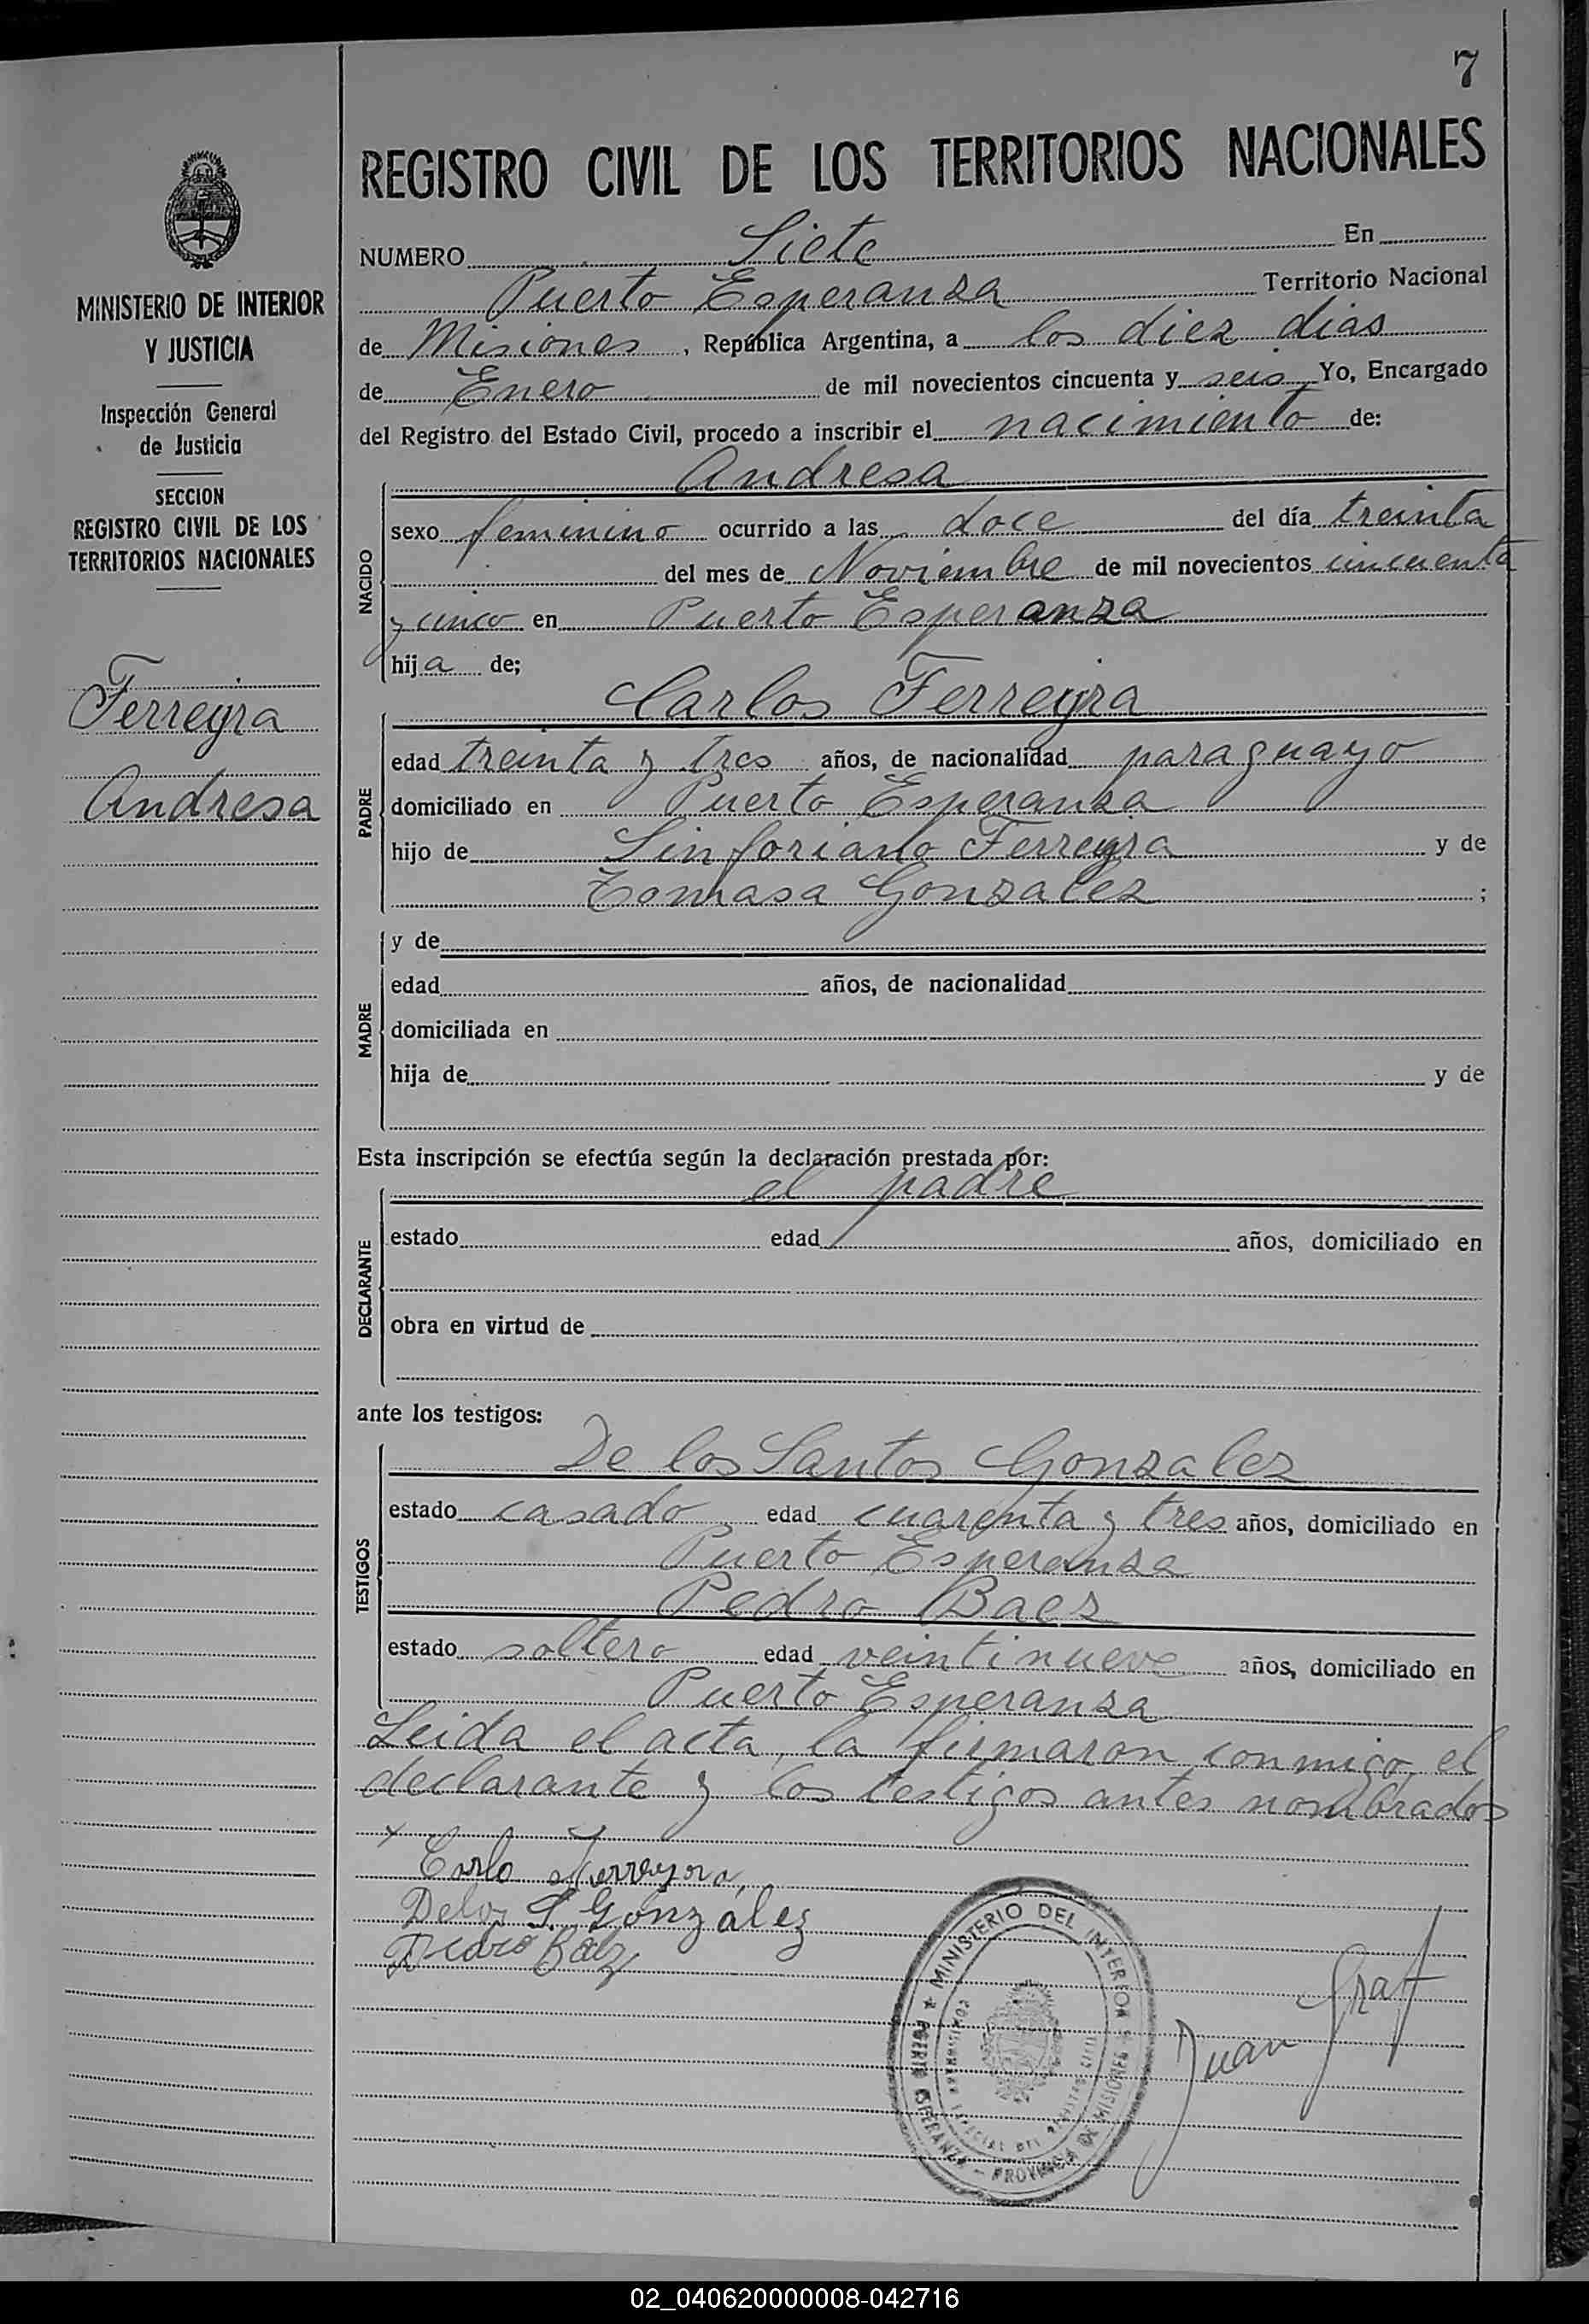 7
REGISTRO CIVIL DE LOS TERRITORIOS NACIONALES
MINISTERIO DE INTERIOR
Y JUSTICIA
Inspección General
de Justicia
SECCION
REGISTRO CIVIL DE LOS
TERRITORIOS NACIONALES
Ferreyra
Andresa
NUMERO Siete En
Puerto Esperanza Territorio Nacional
de Misiones, República Argentina, a los diez dias
de Enero de mil novecientos cincuenta y seis Yo, Encargado
del Registro del Estado Civil, procedo a inscribir el nacimiento de:
Andresa
NACIDO
sexo feminino ocurrido a las doce del día treinta
del mes de Noviembre de mil novecientos cincuenta
y cinco en Puerto Esperanza
hija de;
Carlos Ferreyra
PADRE
edad treinta y tres años, de nacionalidad paraguayo
domiciliado en Puerto Esperanza
hijo de Sinforiano Ferreyra y de
Tomasa Gonzalez ;
MADRE
y de
edad años, de nacionalidad
domiciliada en
hija de y de
Esta inscripción se efectúa según la declaración prestada por:
el padre
DECLARANTE
estado edad años, domiciliado en
obra en virtud de
ante los testigos:
De los Santos Gonzalez
TESTIGOS
estado casado edad cuarenta y tres años, domiciliado en
Puerto Esperanza
Pedro Baez
estado soltero edad veintinueve años, domiciliado en
Puerto Esperanza
Leida el acta, la firmaron conmigo, el
declarante y los testigos antes nombrados
x
Carlo Ferreyra
Delos S. Gonzalez
Pedro Baez
MINISTERIO DEL INTERIOR
PUERTO ESPERANZA - PROVINCIA DE MISIONES
Juan Graf
02_040620000008-042716